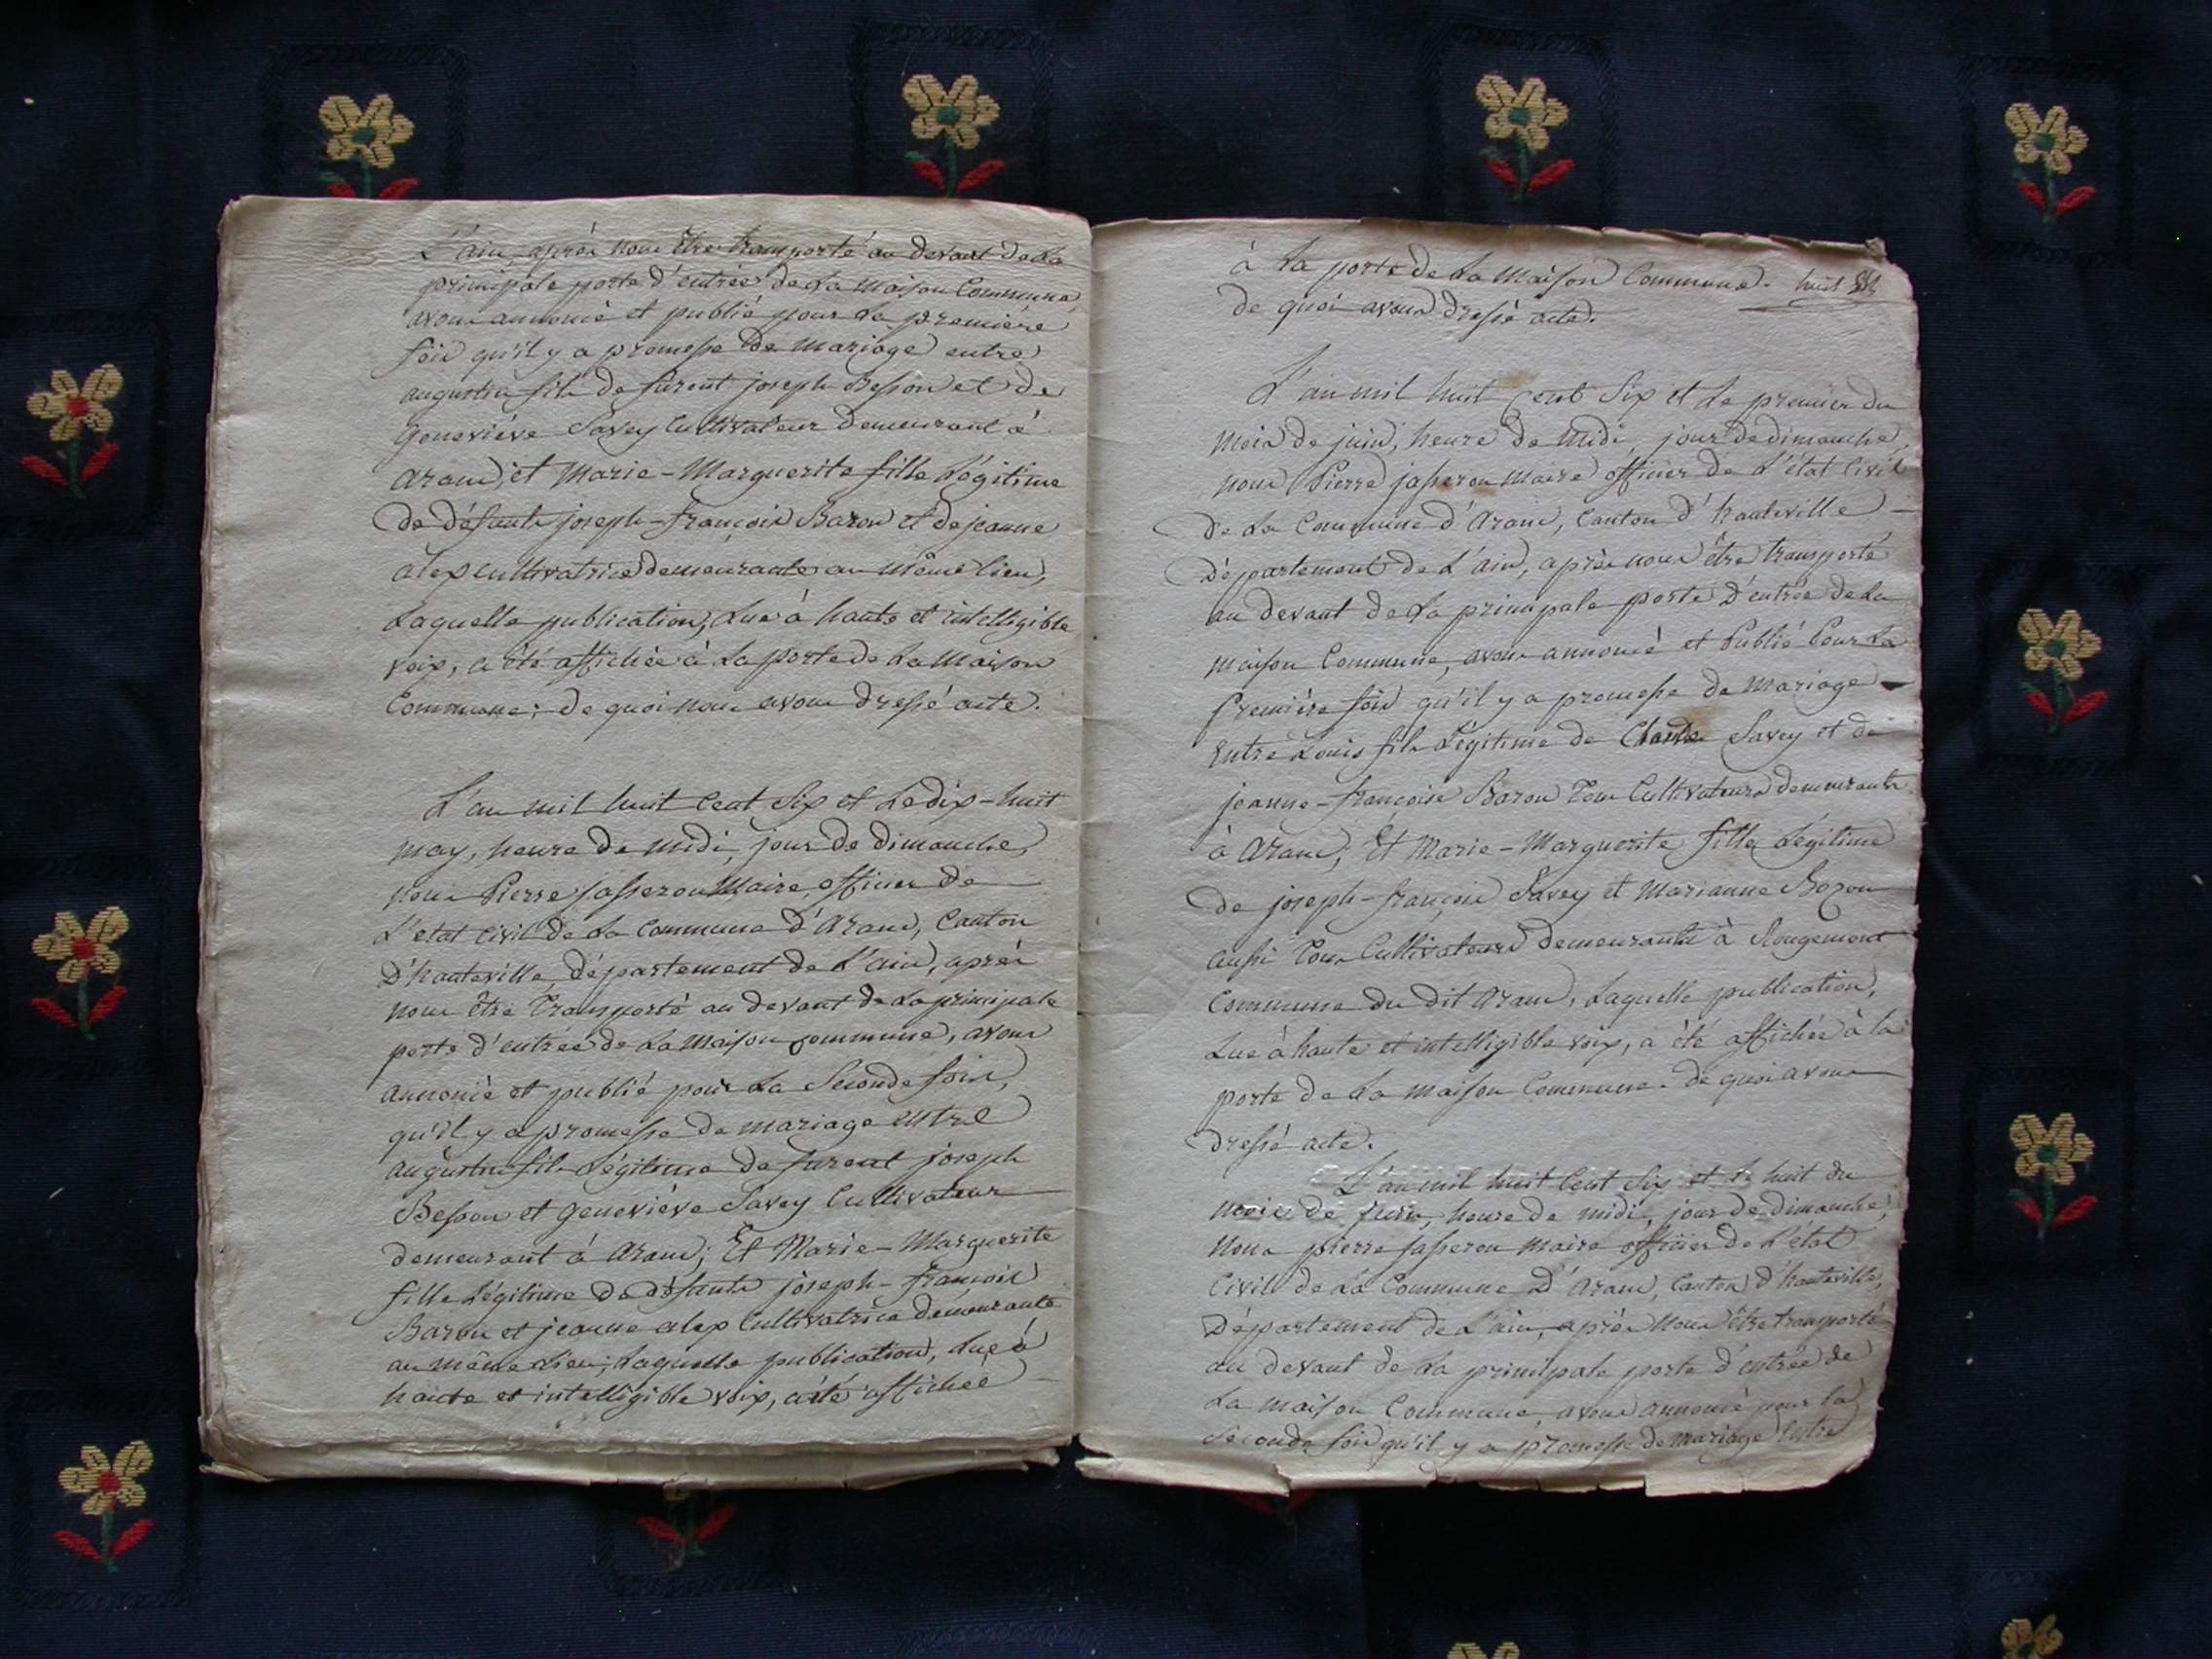 L'ain, après nous être transporté au devant de la
principale porte d'entrée de la maison Commune,
avons annoncé et publié pour la première
fois qu'il y a promesse de mariage entre
augustin fils de furent joseph Besson et de
Geneviève Savey Cultivateur demeurant à
aranc, et Marie-Marguerite fille Légitime
de défunts joseph-françois Baron et de jeanne
alex cultivatrice demeurante au même lieu,
Laquelle publication, lue à haute et intelligible
voix, a été affichée à la porte de la Maison
Commune; de quoi nous avons dressé acte.
L'an mil huit Cent Six et le dix-huit
may, heure de midi, jour de dimanche,
nous Pierre jasseron Maire, officier de
L'etat civil de la Commune d'Aranc, Canton
D'hauteville, département de L'ain, après
nous être Transporté au devant de la principale
porte d'entrée de la Maison commune, avons
annoncé et publié pour la Seconde fois,
qu'il y a promesse de mariage entre
augustin fils Légitime de furent joseph
Besson et geneviève Savey Cultivateur
demeurant à Aranc; Et Marie-Marguerite
fille Légitime de défunts joseph-françois
Baron et jeanne alex Cultivatrice demeurante
au même Lieu; Laquelle publication, lue à
haute et intelligible voix, a été affichée
à la porte de la Maison Commune. huit
de quoi avons dressé acte.
L'an mil huit Cent Six et le premier du
mois de juin, heure de Midi, jour de dimanche,
nous Pierre jasseron Maire officier de L'état Civil
de la Commune d'Aranc, Canton d'hauteville
département de L'ain, après nous être transporté
au devant de la principale porte D'entrée de la
maison Commune, avons annoncé et Publié Pour la
première fois qu'il y a promesse de mariage
Entre Louis fils Légitime de Claude Savey et de
jeanne-françoise Baron Tous Cultivateurs demeurants
à Aranc; Et Marie-Marguerite fille Légitime
de joseph-françois Savey et Marianne Bozon
aussi Tous Cultivateurs demeurants à Rougemont
Commune du dit Aranc, Laquelle publication,
Lue à haute et intelligible voix, a été affichée à la
porte de la maison Commune. de quoi avons
dressé acte.
L'an mil huit Cent Six et le huit du
mois de juin, heure de midi, jour de dimanche,
Nous pierre jasseron maire officier de L'état
Civil de la Commune d'Aranc, Canton d'hauteville,
Département de L'ain, après Nous être transporté
au devant de la principale porte d'entrée de
La maison Commune, avons annoncé pour la
seconde fois qu'il y a promesse de mariage Entre